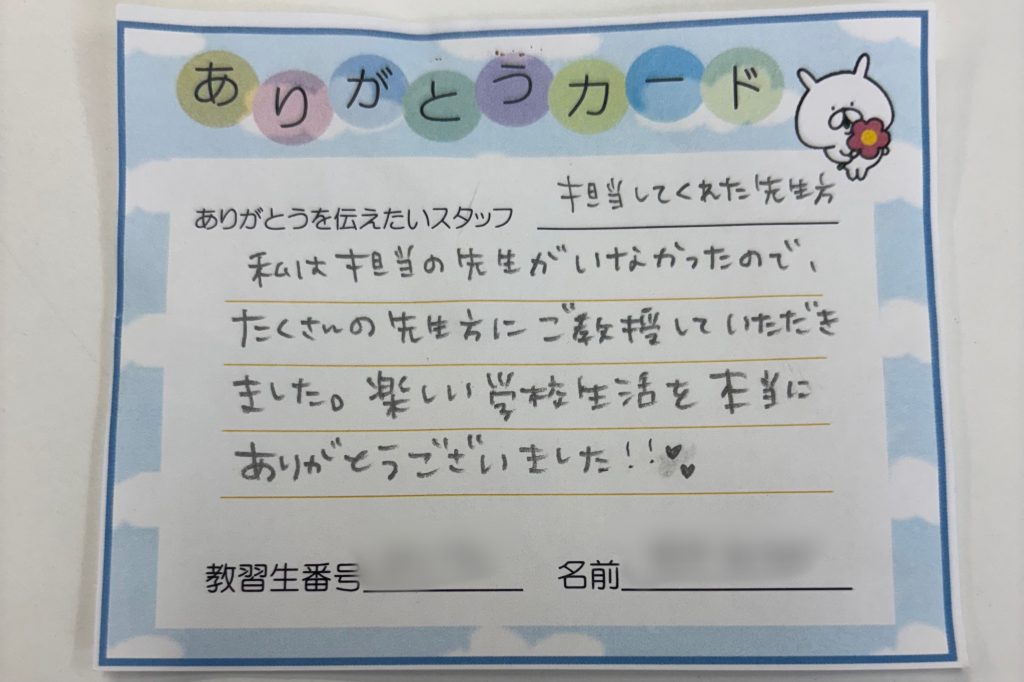 ありがとうカード
担当してくれた先生方
ありがとうを伝えたいスタッフ
私は担当の先生がいなかったので、
たくさんの先生方にご教授していただき
ました。楽しい学校生活を本当に
ありがとうございました!!♥♥
教習生番号 名前